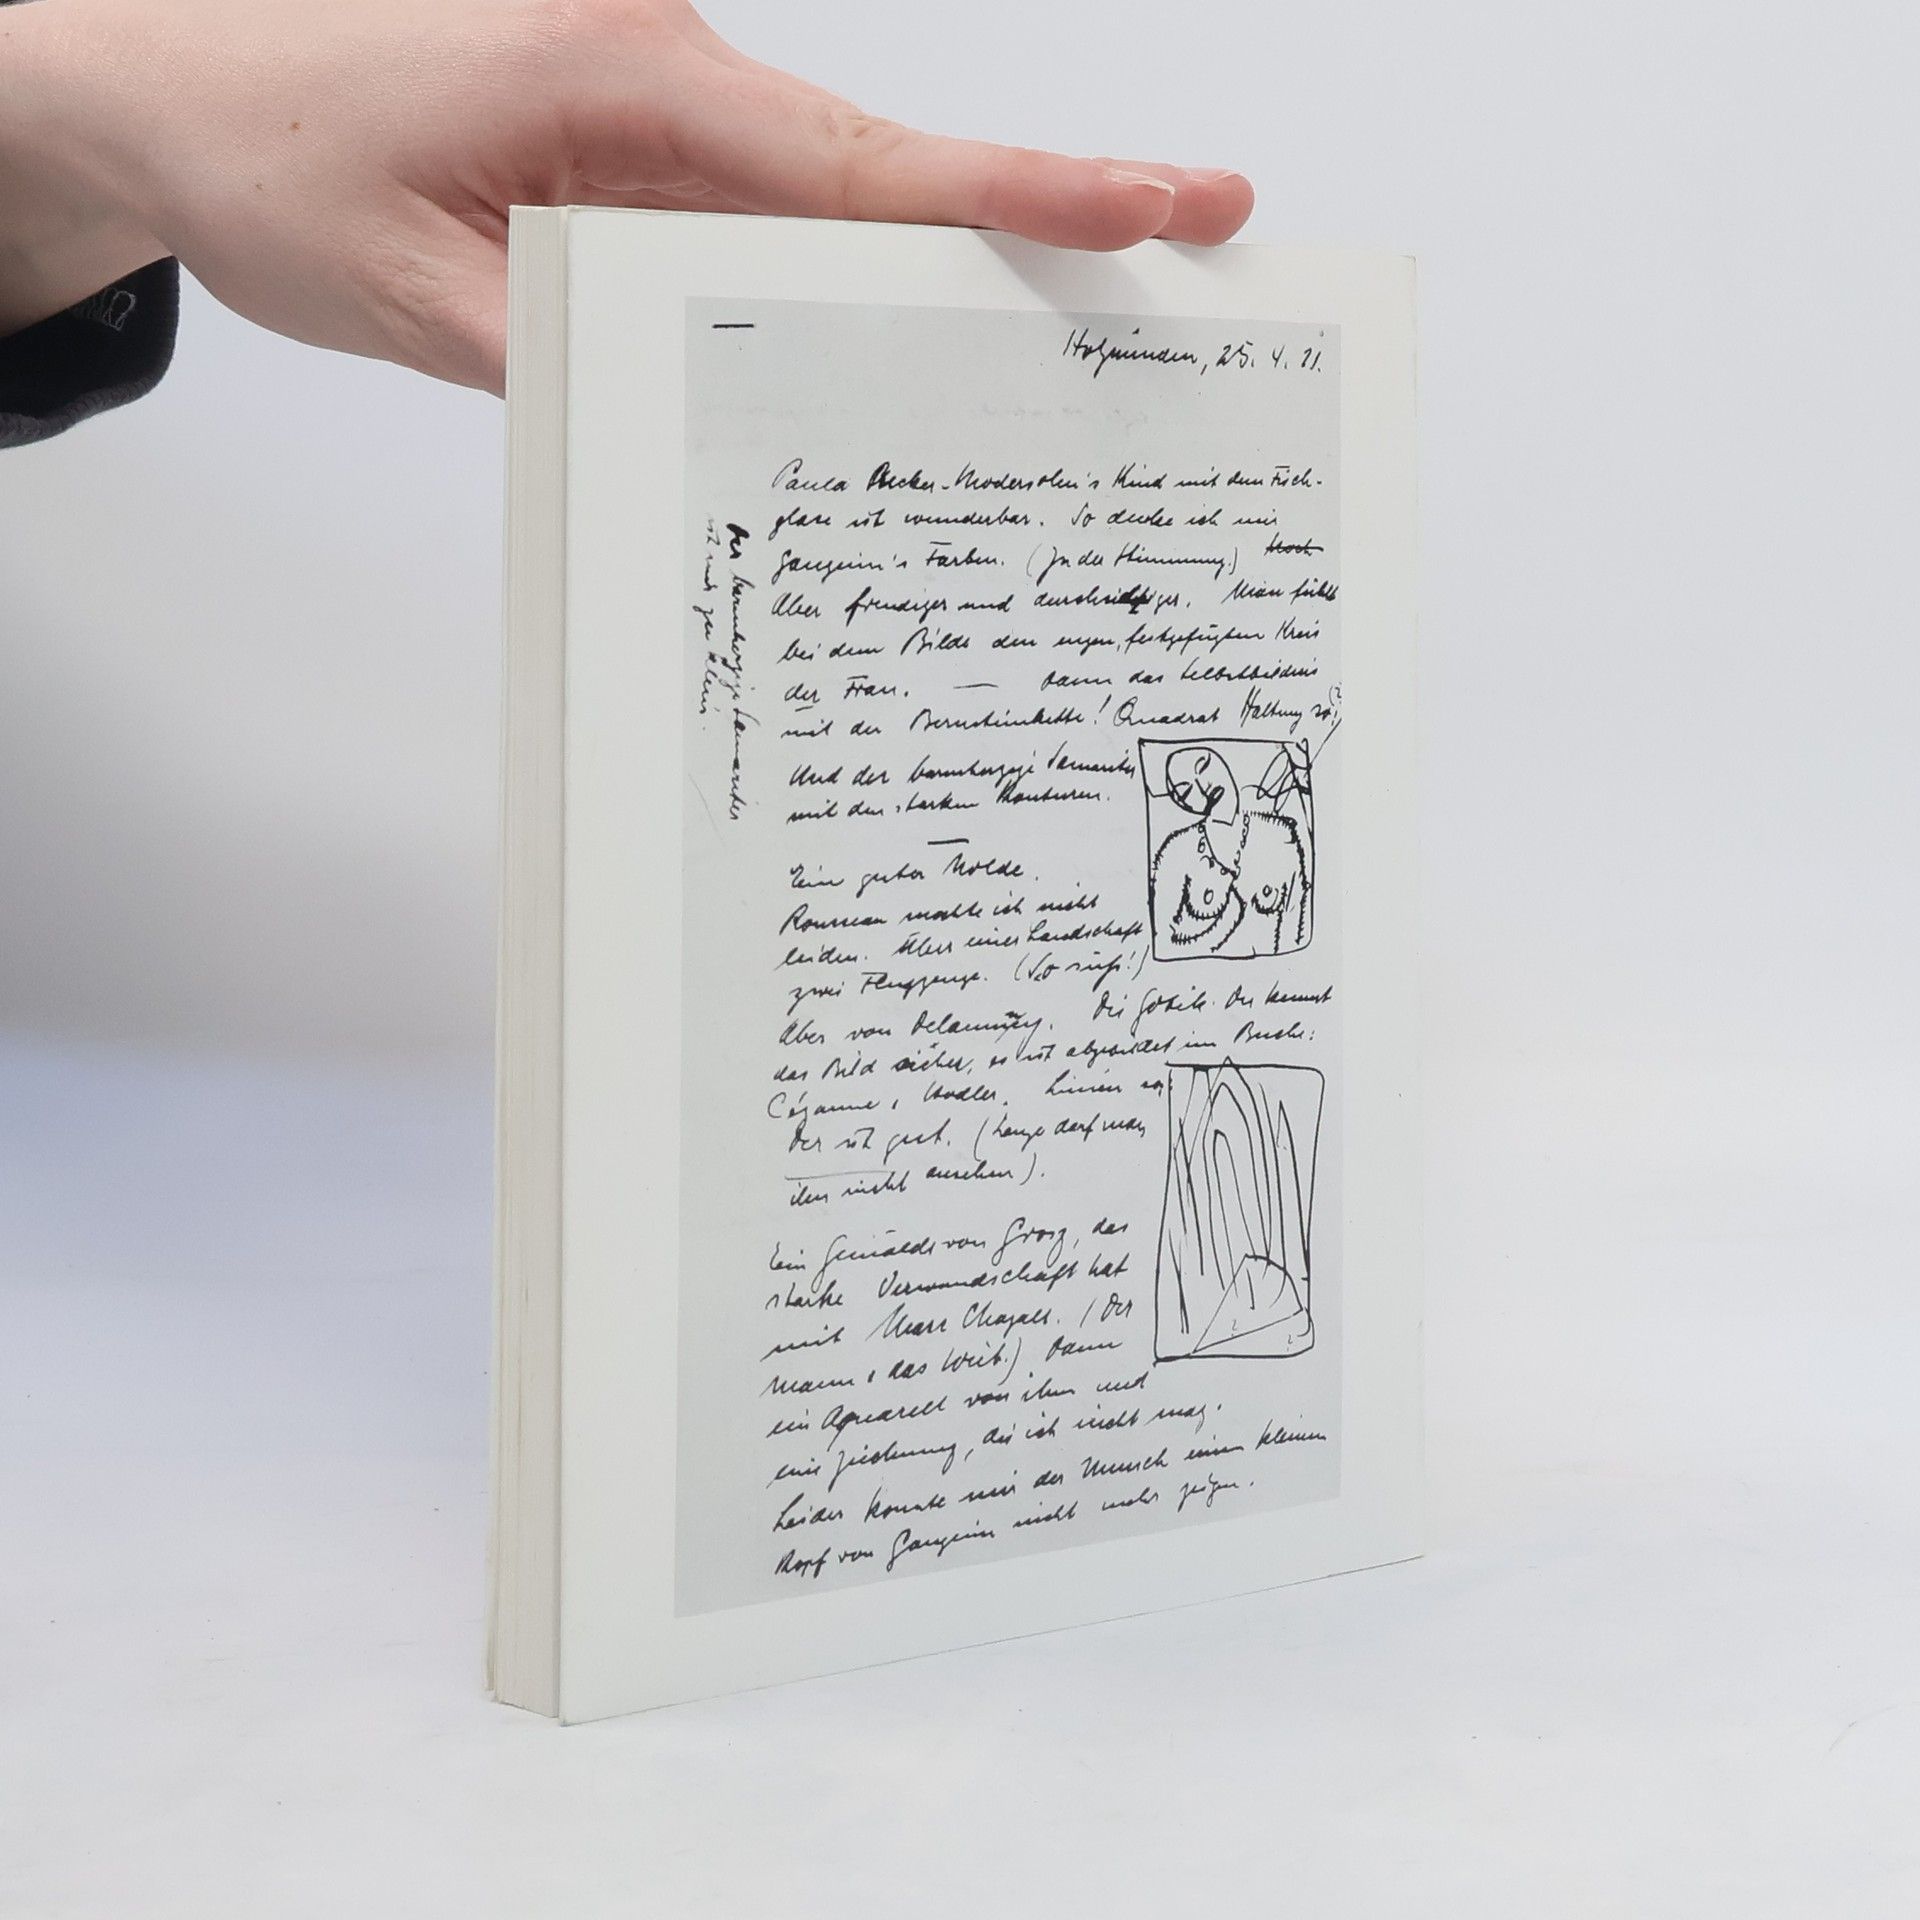 Holzminden, 25. 4. 21.
Paula Becker-Modersohn's Kind mit dem Fisch-
glase ist wunderbar. So denke ich mir
Gauguin's Farben. (In der Stimmung.) Noch
Aber freudiger und durchsichtiger. Man fühlt
bei dem Bilde den engen, festgefügten Kreis
der Frau. — Dann das Selbstbildnis
mit der Bernsteinkette! Quadrat Haltung so:
Und der barmherzige Samariter
mit den starken Konturen.
Ein guter Nolde.
Rousseau mochte ich nicht
leiden. Über einer Landschaft
zwei Flugzeuge. (So süß!)
Aber von Delaunay. Die Gotik. Du kennst
das Bild sicher, es ist abgebildet im Buche:
Cézanne, Hodler. Linien so:
Der ist gut. (Lange darf man
ihn nicht ansehen).
Ein Gemälde von Grosz, das
starke Verwandschaft hat
mit Marc Chagall. (Der
Mann, das Weib.) Dann
ein Aquarell von ihm und
eine Zeichnung, die ich nicht mag.
Leider konnte mir der Mensch einen kleinen
Kopf von Gauguin nicht mehr zeigen.
Der barmherzige Samariter
ist nur zu klein.